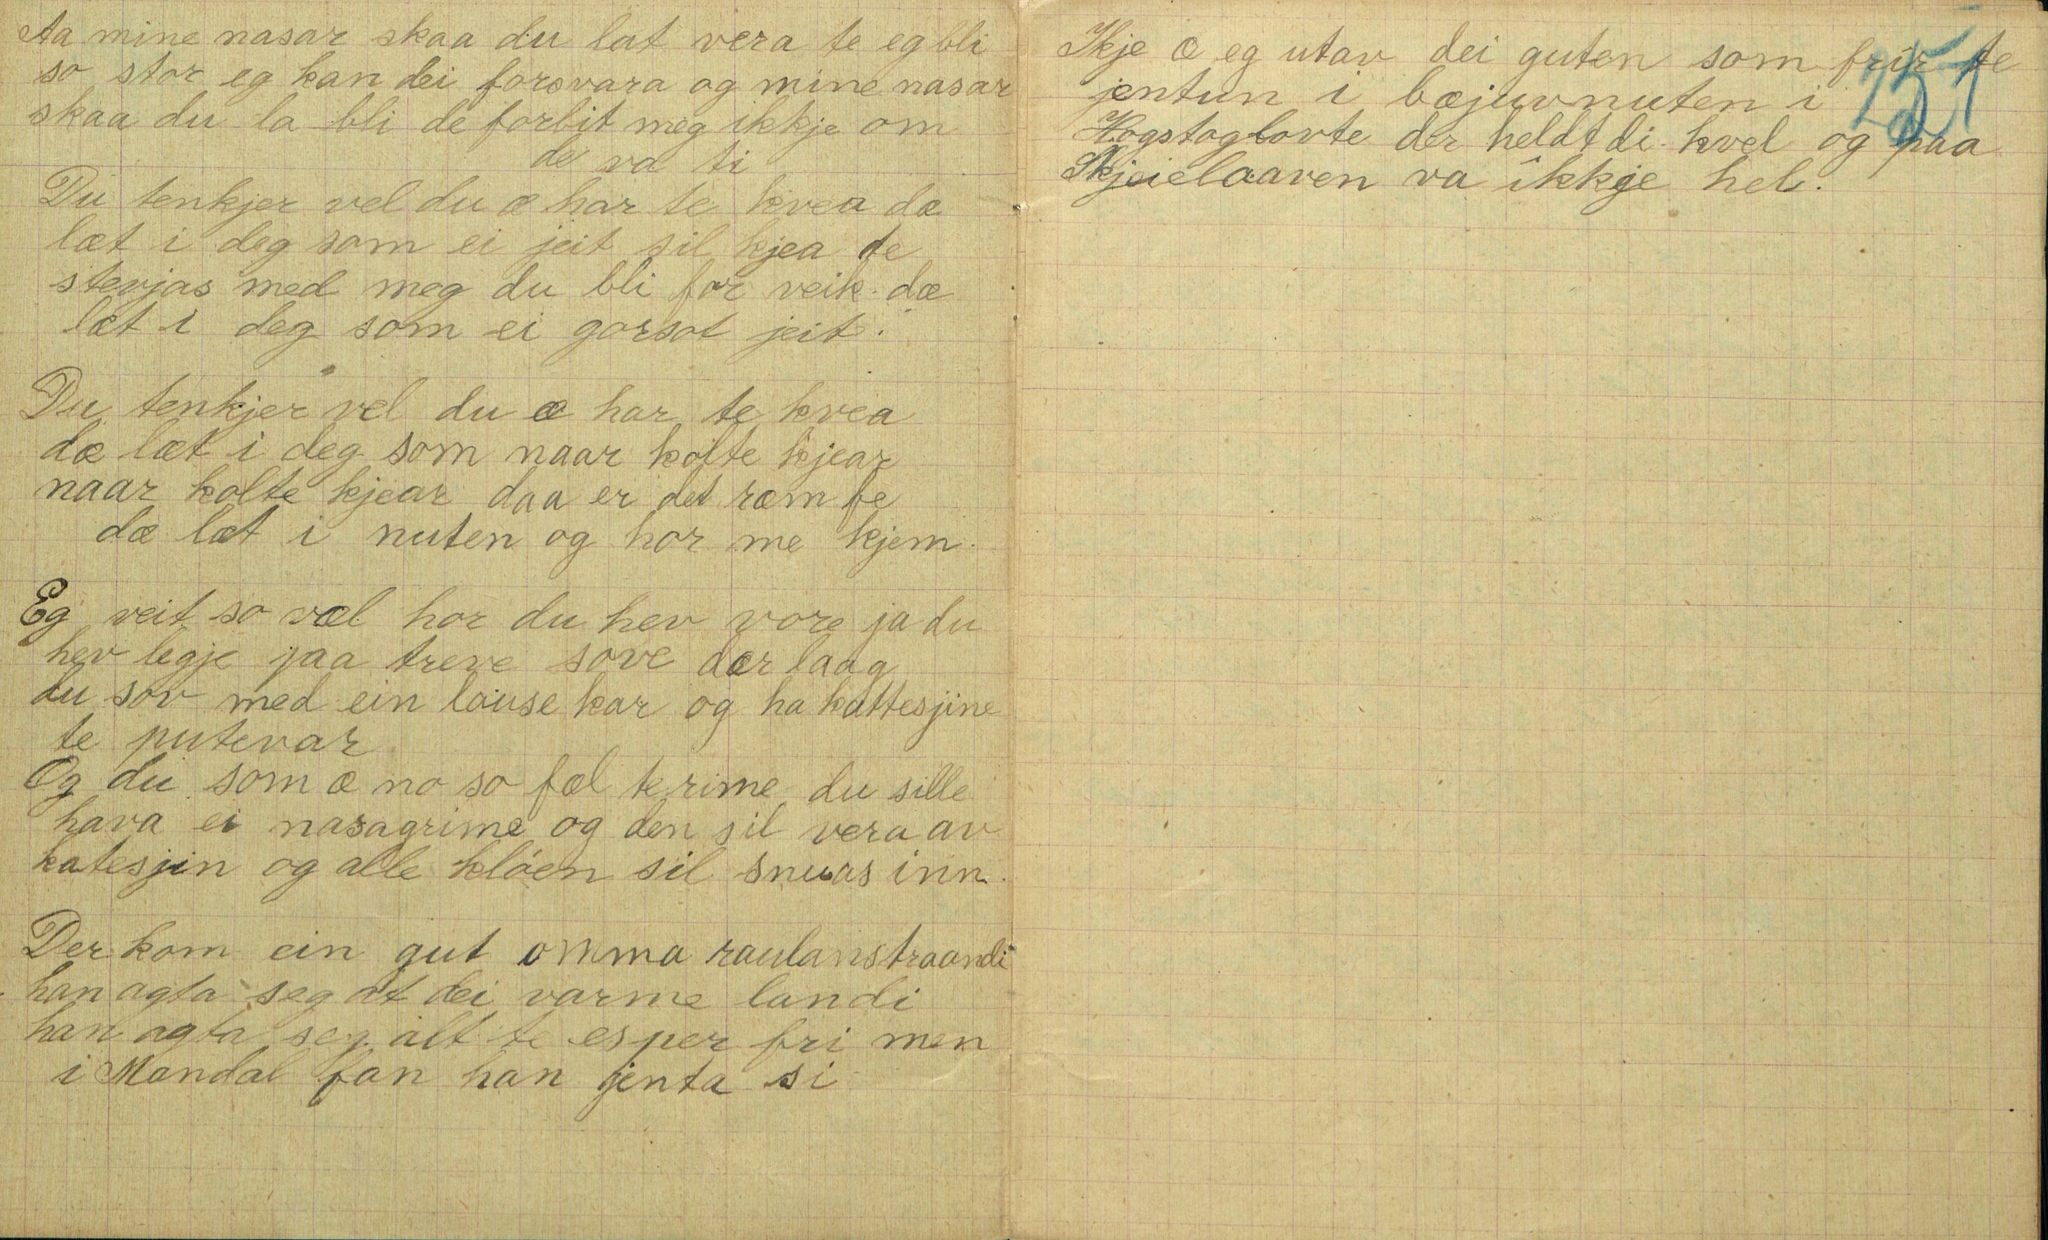 Aa mine nasar skaa du lat vera te eg bli
so stor eg kan dei forsvara og mine nasar
skaa du la bli de forbit meg ikkje om
de va ti
Du tenkjer vel du æ har te kvea dæ
læt i deg som ei jeit sil kjea te
stevjas med meg du bli for veik. dæ
læt i deg som ei gorsot jeit.
Du tenkjer vel du æ har te kvea
dæ læt i deg som naar kolte kjear
naar kolte kjear daa er det ræm te
dæ læt i nuten og hor me kjem.
Eg veit so væl hor du hev vore ja du
hev legje paa treve sove dær laag
du sov med ein louse kar og ha kattesjine
te putevar
Og du som æ no so fæl te rime du sille
hava ei nasagrime og den sil vera av
katesjin og alle klóen sil snuas inn.
Der kom ein gut omma raulanstraandi
han agta seg at dei varme landi
han agta seg alt te esper fri men
i Mandal fan han jenta si
Ikje æ eg utav dei guten som frir te
jentun i bæjuvnuten i
Hogstoglovte der heldt di kvel og paa
Skjeielaaven va ikkje hel.
251